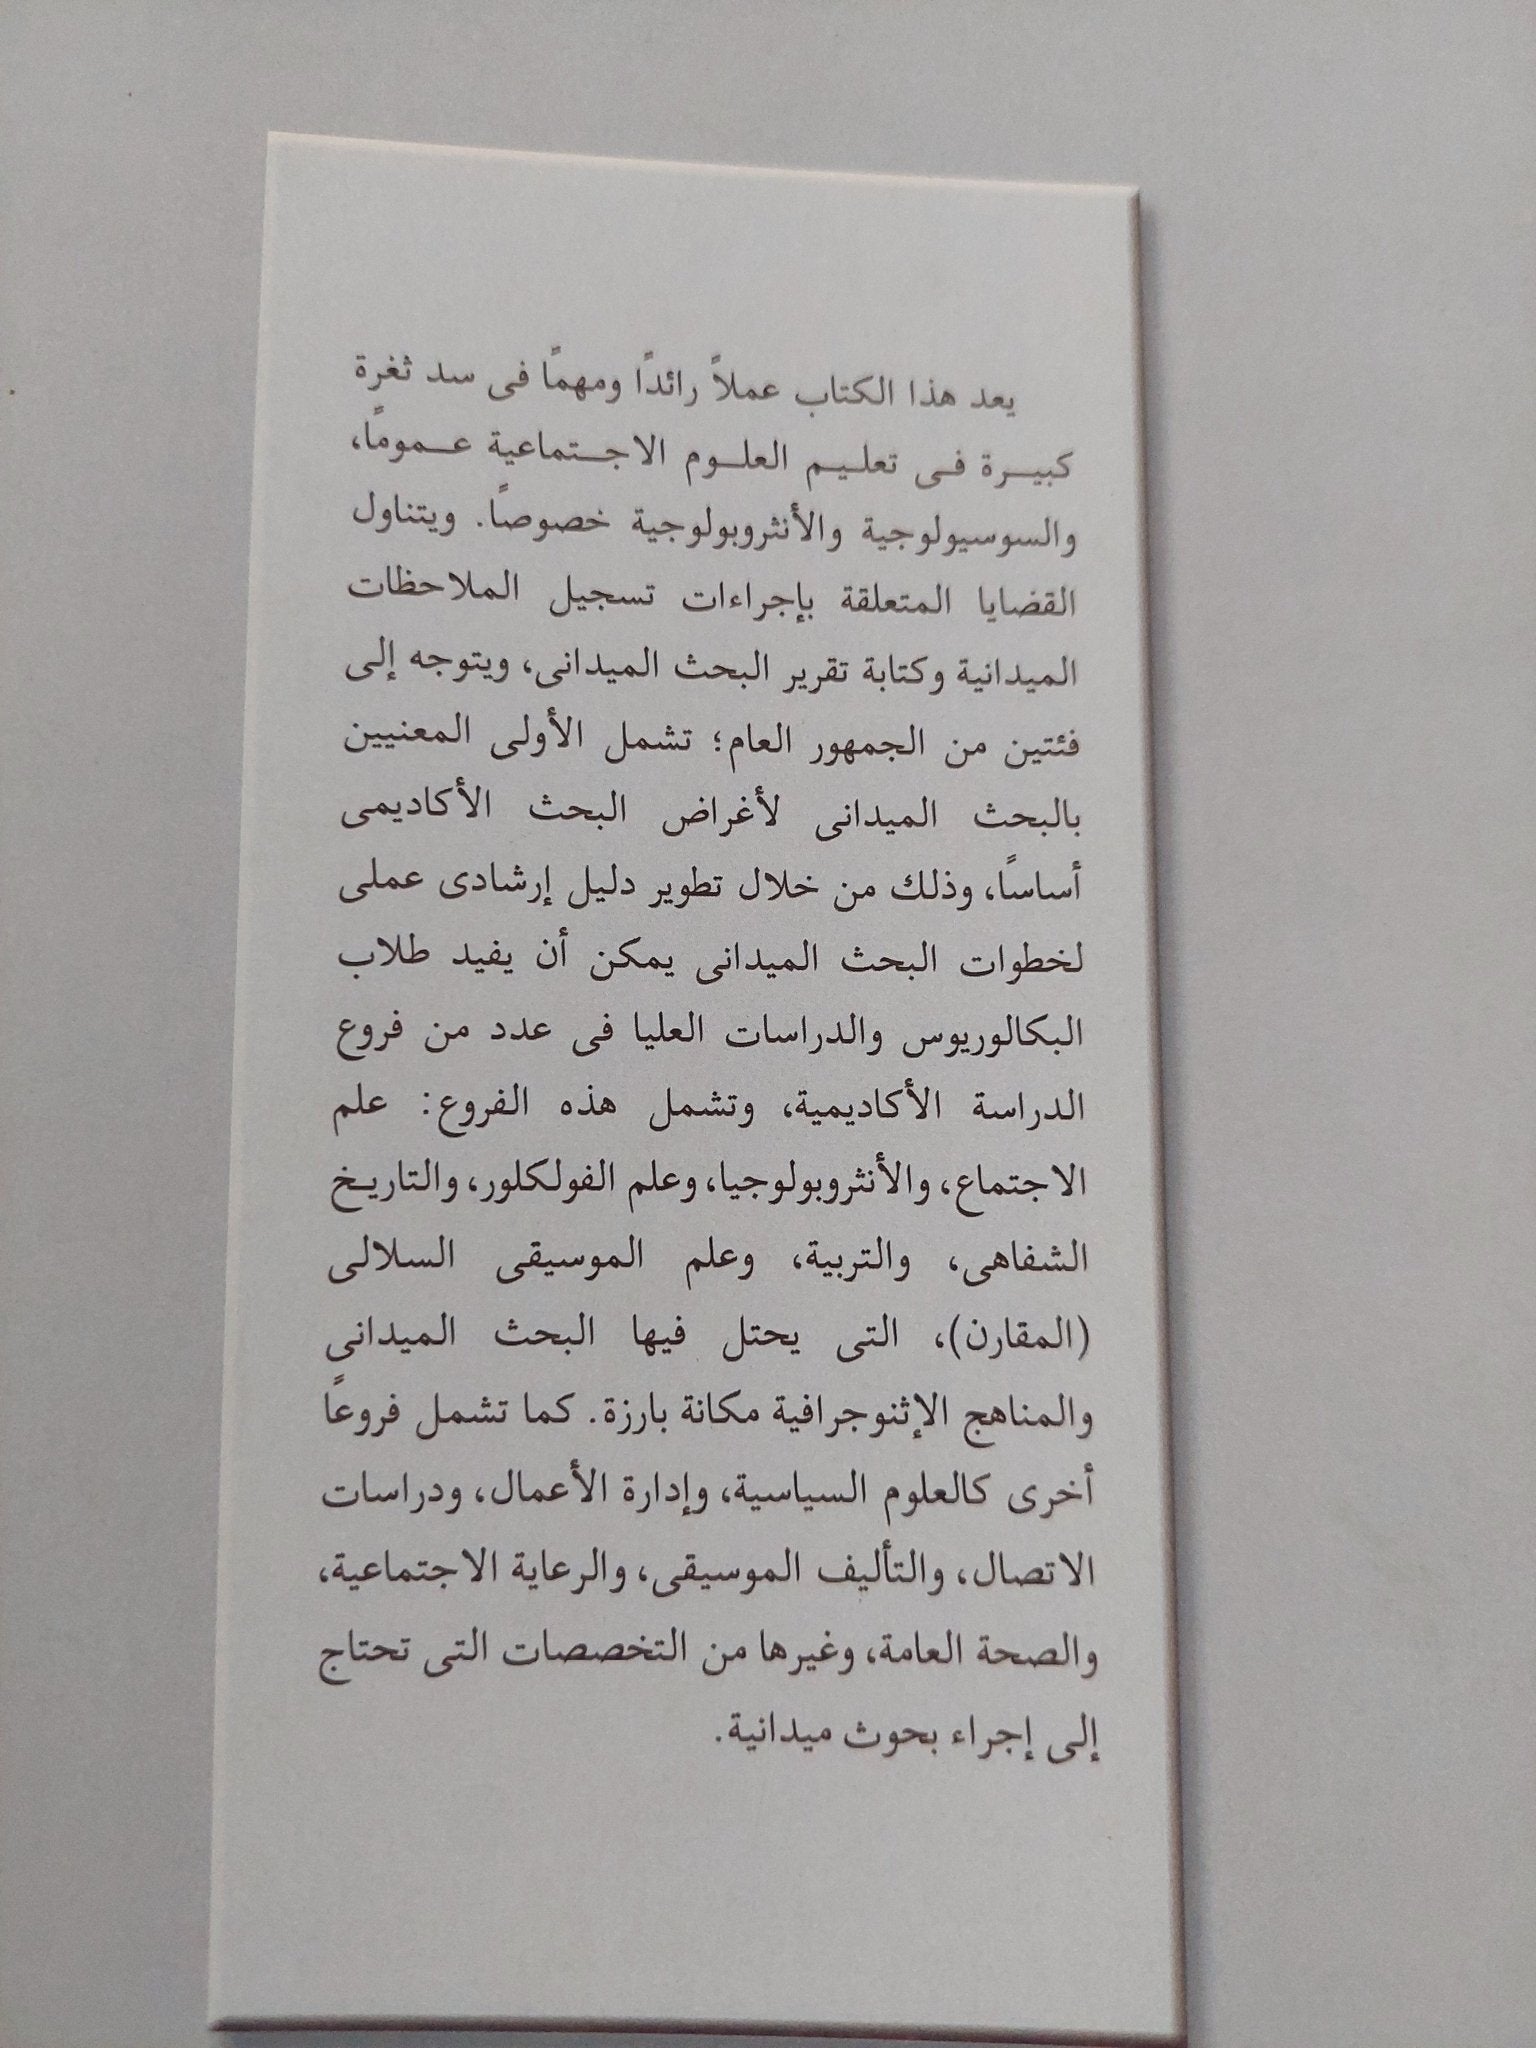 يعد هذا الكتاب عملاً رائدًا ومهمًا فى سد ثغرة
كبيـرة فـى تعليـم العلـوم الاجـتماعية عـمومًا،
والسوسيولوجية والأنثروبولوجية خصوصًا. ويتناول
القضايا المتعلقة بإجراءات تسجيل الملاحظات
الميدانية وكتابة تقرير البحث الميدانى، ويتوجه إلى
فئتين من الجمهور العام؛ تشمل الأولى المعنيين
بالبحث الميدانى لأغراض البحث الأكاديمى
أساسًا، وذلك من خلال تطوير دليل إرشادى عملى
لخطوات البحث الميدانى يمكن أن يفيد طلاب
البكالوريوس والدراسات العليا فى عدد من فروع
الدراسة الأكاديمية، وتشمل هذه الفروع: علم
الاجتماع، والأنثروبولوجيا، وعلم الفولكلور، والتاريخ
الشفاهى، والتربية، وعلم الموسيقى السلالى
(المقارن)، التى يحتل فيها البحث الميدانى
والمناهج الإثنوجرافية مكانة بارزة. كما تشمل فروعًا
أخرى كالعلوم السياسية، وإدارة الأعمال، ودراسات
الاتصال، والتأليف الموسيقى، والرعاية الاجتماعية،
والصحة العامة، وغيرها من التخصصات التى تحتاج
إلى إجراء بحوث ميدانية.